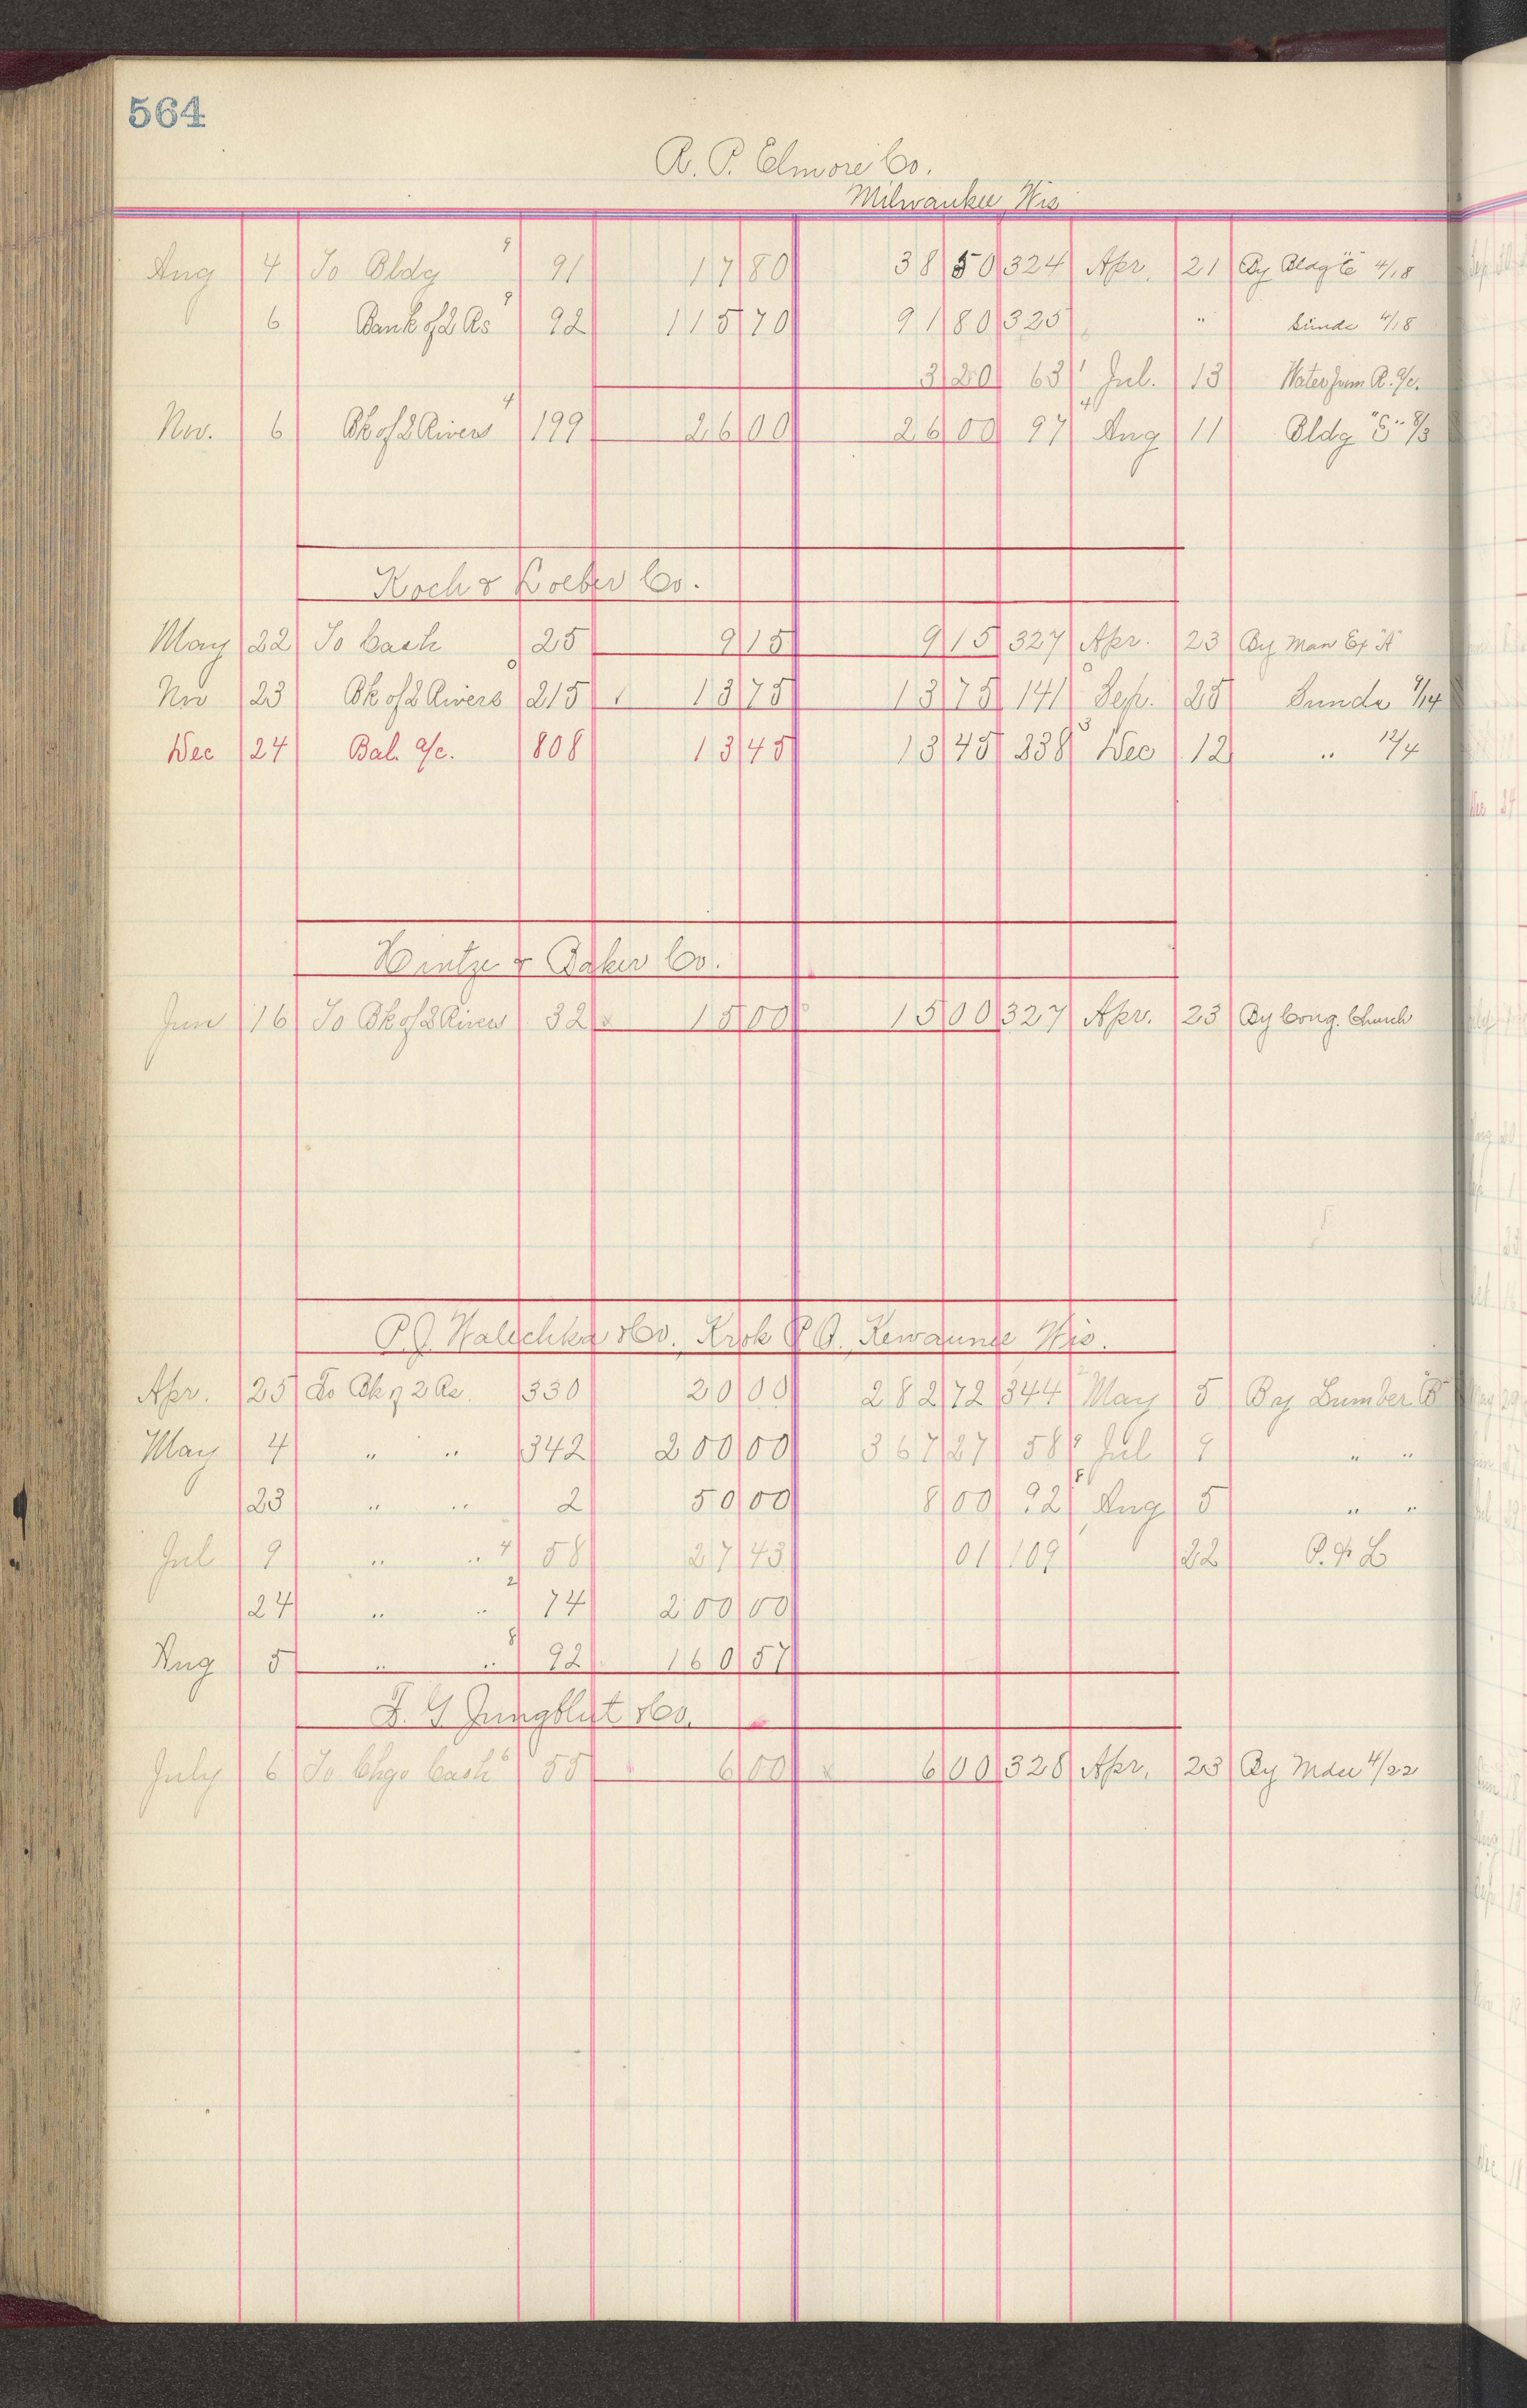 564
R. P. Elmore Co.
Milwaukee, Wis
Aug 4 To Bldg 9 91 17 80 38 50 324 Apr. 21 By Bldg "E" 4/18
6 Bank of 2 Rs 9 92 115 70 91 80 325 " Sunds 4/18
3 20 63 1 Jul. 13 a/c.
Nov. 6 Bk of 2 Rivers 4 199 26 00 26 00 97 4 Aug 11 Bldg "S" 8/3
Koch & Loeber Co.
May 22 To Cash 25 9 15 9 15 327 Apr. 23 By Man Ex "A"
Nov 23 Bk of 2 Rivers 215 13 75 13 75 141 Sep. 25 Sunds 9/14
Dec 24 Bal. a/c. 808 13 45 13 45 238 3 Dec 12 " 12/4
Hintze & Baker Co.
Jun 16 To Bk of 2 Rivers 32 15 00 15 00 327 Apr. 23 By Cong. Church
P. J. Walechka & Co. Krok P. O. Kewaunee Wis.
Apr. 25 To Bk of 2 Rs. 330 20 00 282 72 344 May 5 By Lumber B
May 4 " " 342 200 00 367 27 58 9 Jul 9 " "
23 " " 2 50 00 8 00 92 8 Aug 5 " "
Jul 9 " " 4 58 27 43 01 109 22 P. & L
24 " " 2 74 200 00
Aug 5 " " 8 92 160 57
F. G. Jungblut & Co.
July 6 To Chgo Cash 6 55 6 00 6 00 328 Apr. 23 By Mdse 4/22